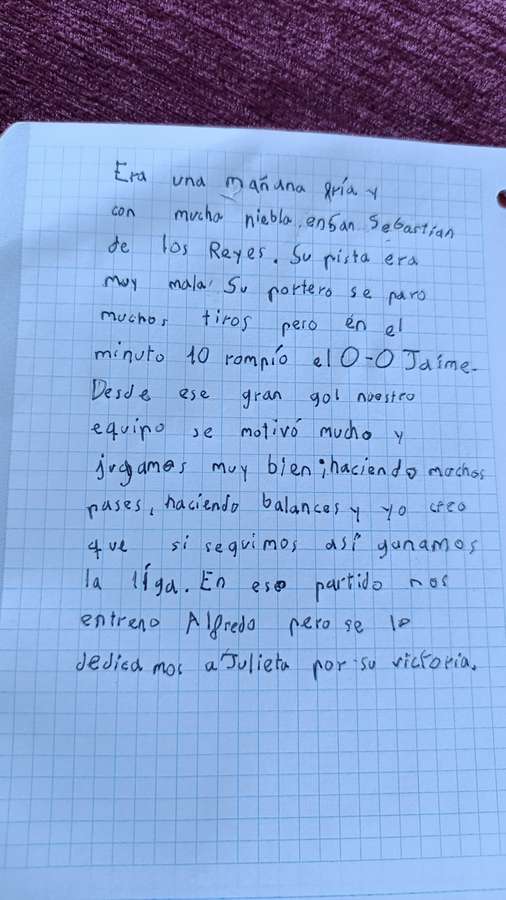 Era una mañana fría y
con mucha niebla, en San Sebastian
de los Reyes. Su pista era
muy mala. Su portero se paro
muchos tiros pero én el
minuto 10 rompío el 0-0 Jaime.
Desde ese gran gol nuestro
equipo se motivó mucho y
jugamos muy bien; haciendo muchos
pases, haciendo balances y yo creo
que si seguimos así ganamos
la líga. En ese partido nos
entreno Alfredo pero se lo
dedica mos a Julieta por su victoria.